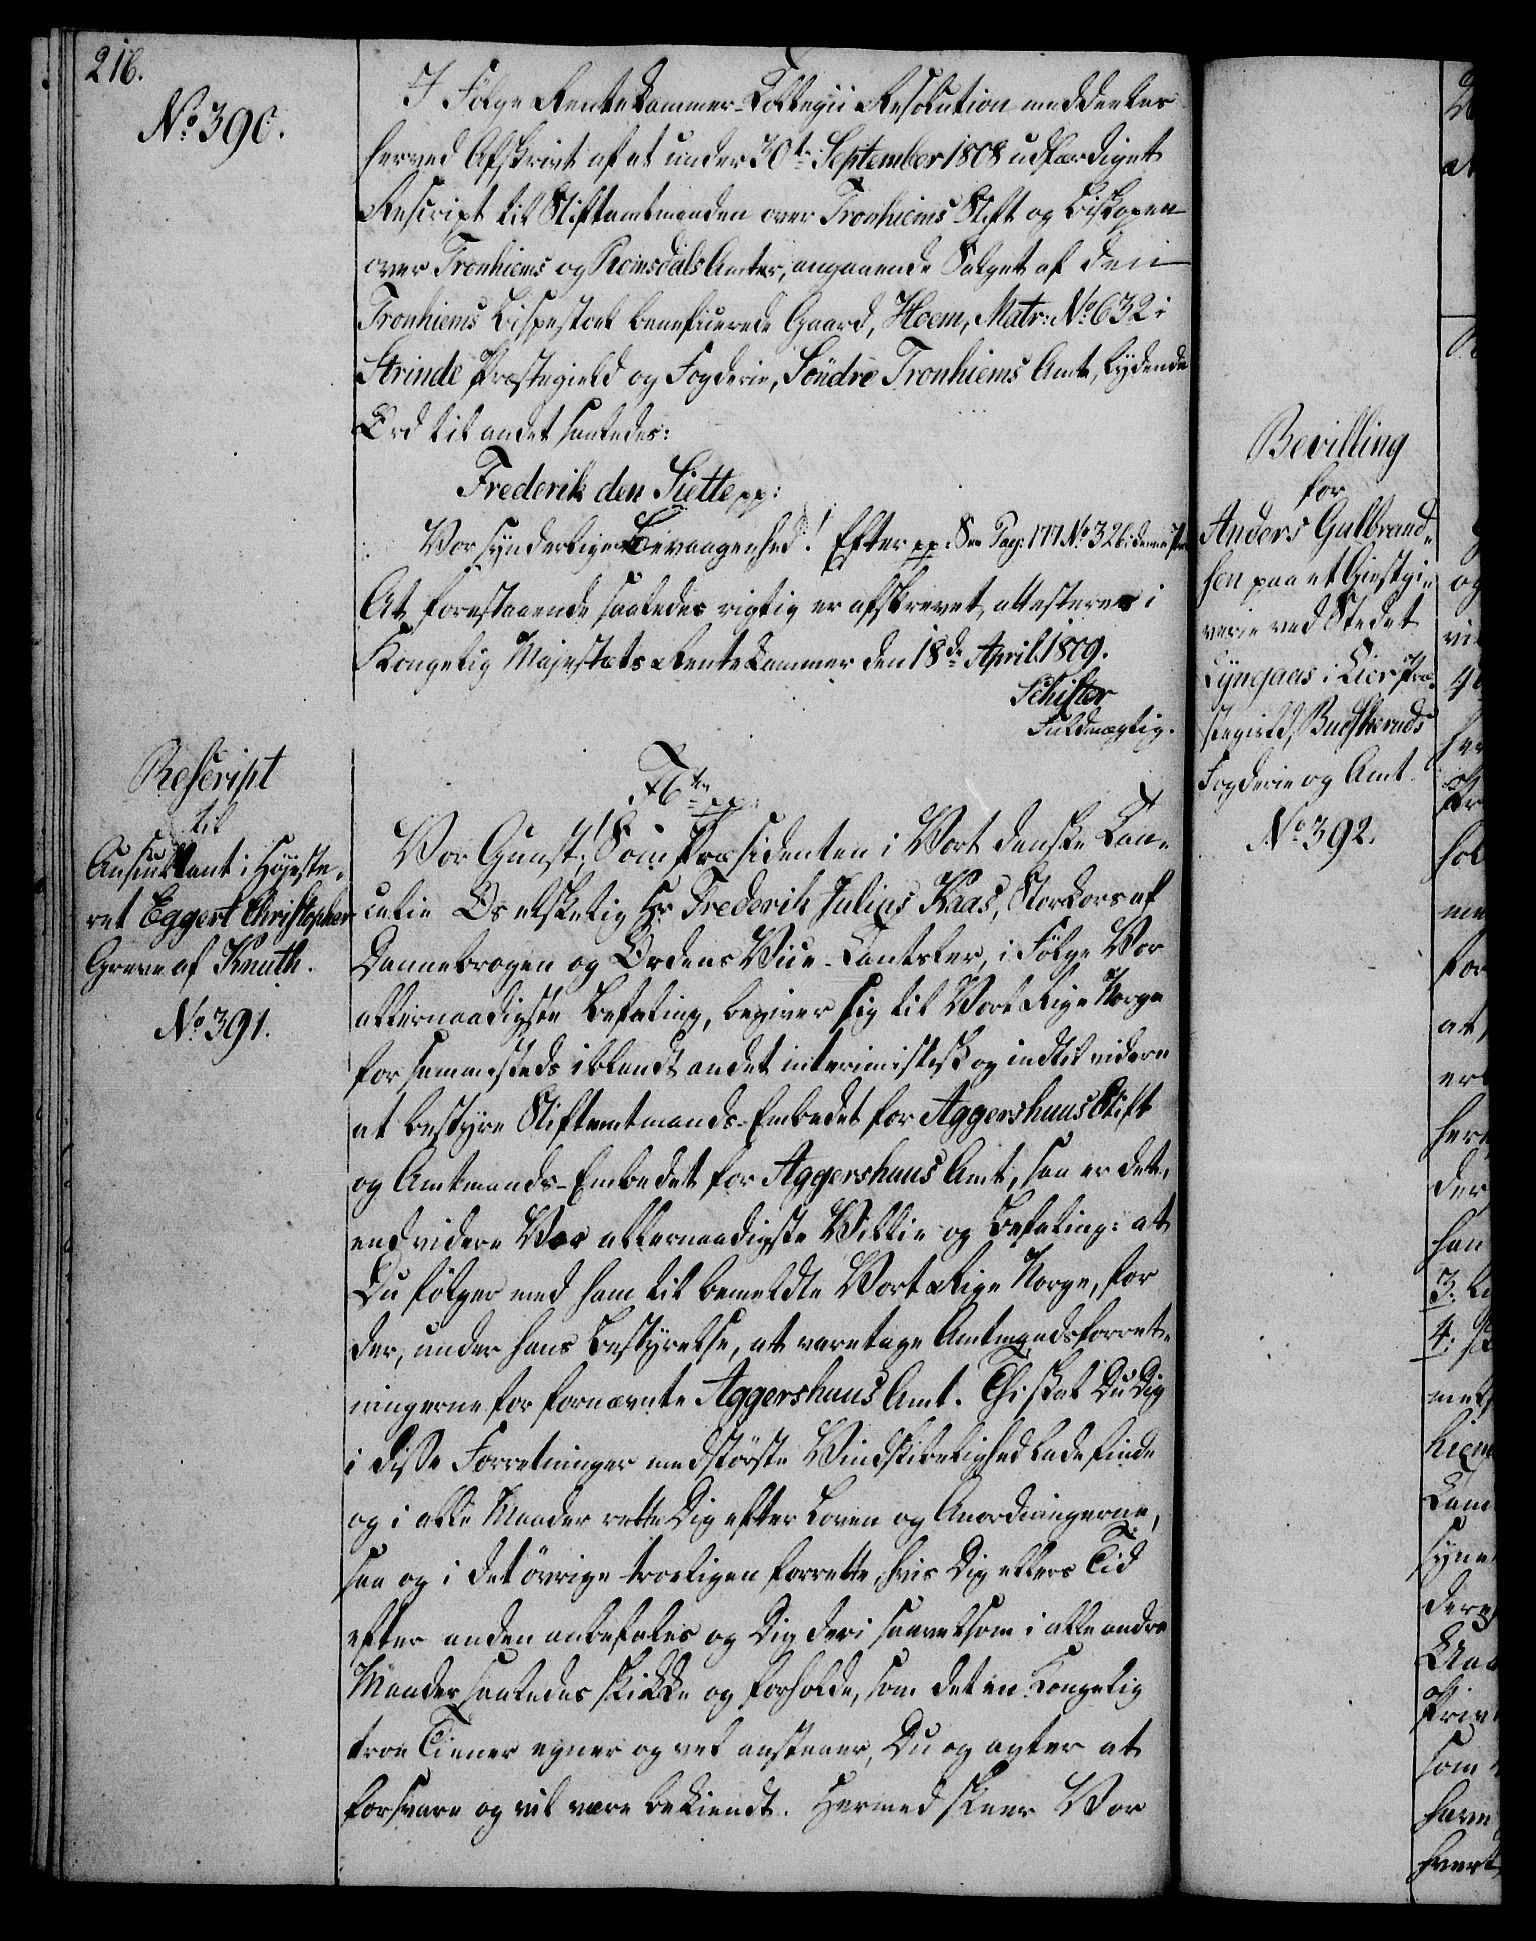 216.
No 390.
I Følge Rentekammer-Collegii Resolution meddeeles
herved Afskrivt af et under 30te September 1808 udfærdiget
Rescript til Stiftamtmanden over Tronhiems Stift og Biskopen
over Tronhiems og Romsdals Amter, angaaende Salget af den
Tronhiems Bispestoel beneficerede Gaard, Hoem, Matr: No 632 i
Strinde Præstegield og Fogderie, Söndre Tronhiems Amt, lydende
Ord til andet saaledes:
Frederik den Siette pp:
Vor synderlige Bevaagenhed! Efter pp: See Pag: 177 No 326 denne
At forestaaende saaledes rigtig er afskrevet, attesteres i
Kongelig Majestæts Rentekammer den 18de April 1809.
Schifter
Fuldmægtig.
Rescript
til
Auscultant i Høieste-
ret Eggert Christopher
Greve af Knuth.
No 391.
F 6te pp:
Vor Gunst! Som Præsidenten i Vort danske Can-
celie Os elskelig Hr Frederik Julius Kaas, Storkors af
Dannebrogen og Ordens Vice-Cantsler, i Følge Vor
allernaadigste Befaling, begiver sig til Vort Rige Norge
for sammesteds iblandt andet interimistisk og indtil videre
at bestyre Stiftamtmands-Embedet for Aggershuus Stift
og Amtmands-Embedet for Aggershuus Amt, saa er det,
end videre Vor allernaadigste Villie og Befaling: at
Du følger med ham til bemeldte Vort Rige Norge, for
der, under hans Bestyrelse, at varetage Amtmandsforret-
ningerne for fornævnte Aggershuus Amt. Thi skal Du Dig
i disse Forretninger med største Vindskibelighed lade finde
og i alle Maader rette Dig efter Loven og Anordningerne,
saa og i det øvrige troeligen forrette, hvis Dig ellers Tid
efter anden anbefales og Dig deri saavelsom i alle andre
Maader saaledes skikke og forholde, som det en Kongelig
troe Tiener egner og vel anstaaer, Du og agter at
forsvare og vil være bekiendt. Hermed skeer Vor
Bevilling
for
Anders Gulbrand-
sen paa et Giestgi-
verie ved Stedet
Lyngaas i Lier Præ-
stegield, Budskeruds
Fogderie og Amt.
No 392.